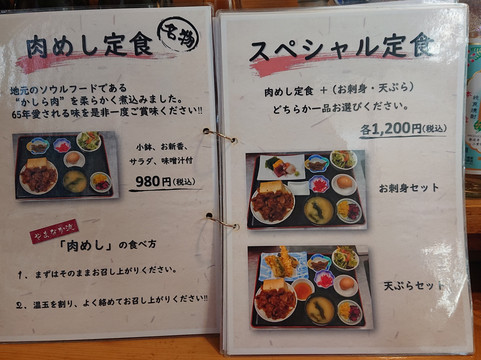 肉めし定食
名物
地元のソウルフードである
“かしら肉”を柔らかく煮込みました。
65年愛される味を是非一度ご賞味ください!!
小鉢、お新香、
サラダ、味噌汁付
980円(税込)
やまなか流
「肉めし」の食べ方
1、まずはそのままお召し上がりください。
2、温玉を割り、よく絡めてお召し上がり下さい!!
スペシャル定食
肉めし定食 +(お刺身・天ぷら)
どちらか一品お選びください。
各1,200円(税込)
お刺身セット
天ぷらセット